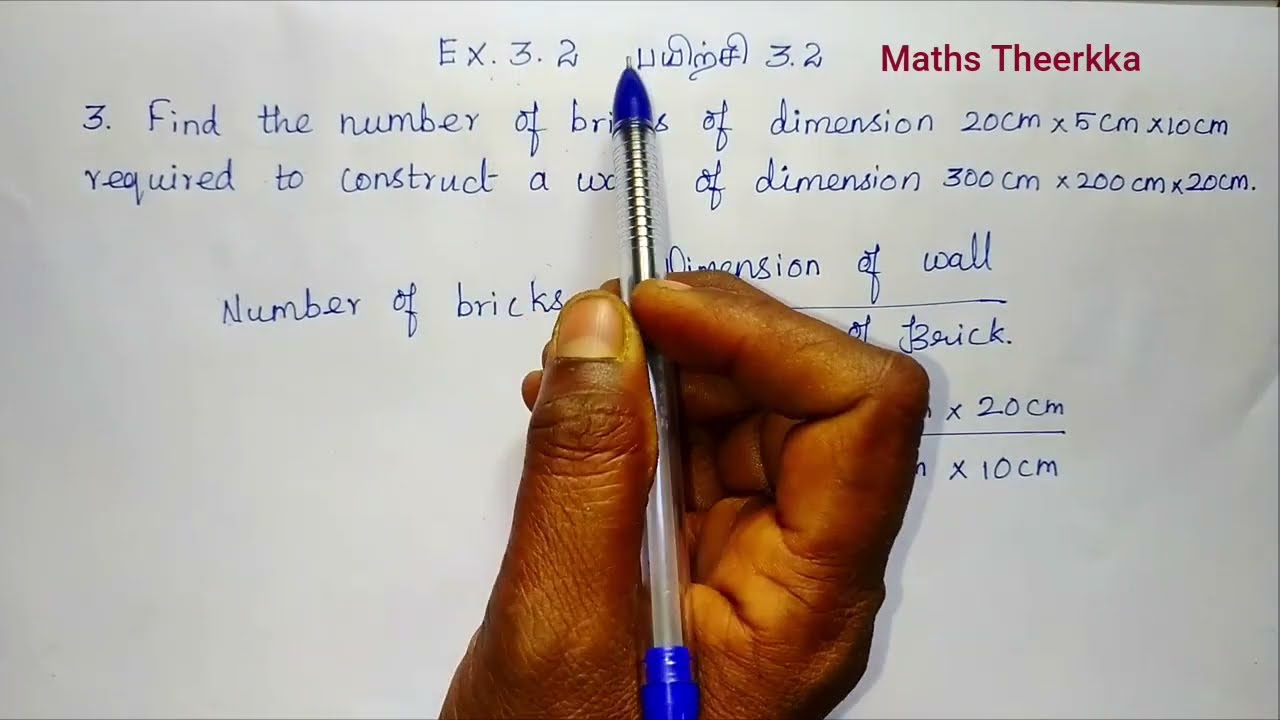 Ex. 3.2 பயிற்சி 3.2 Maths Theerkka
3. Find the number of of dimension 20cm x 5cm x 10cm
required to construct a of dimension 300cm x 200cm x 20cm.
Number of bricks Dimension of wall
of Brick.
x 20cm
x 10cm